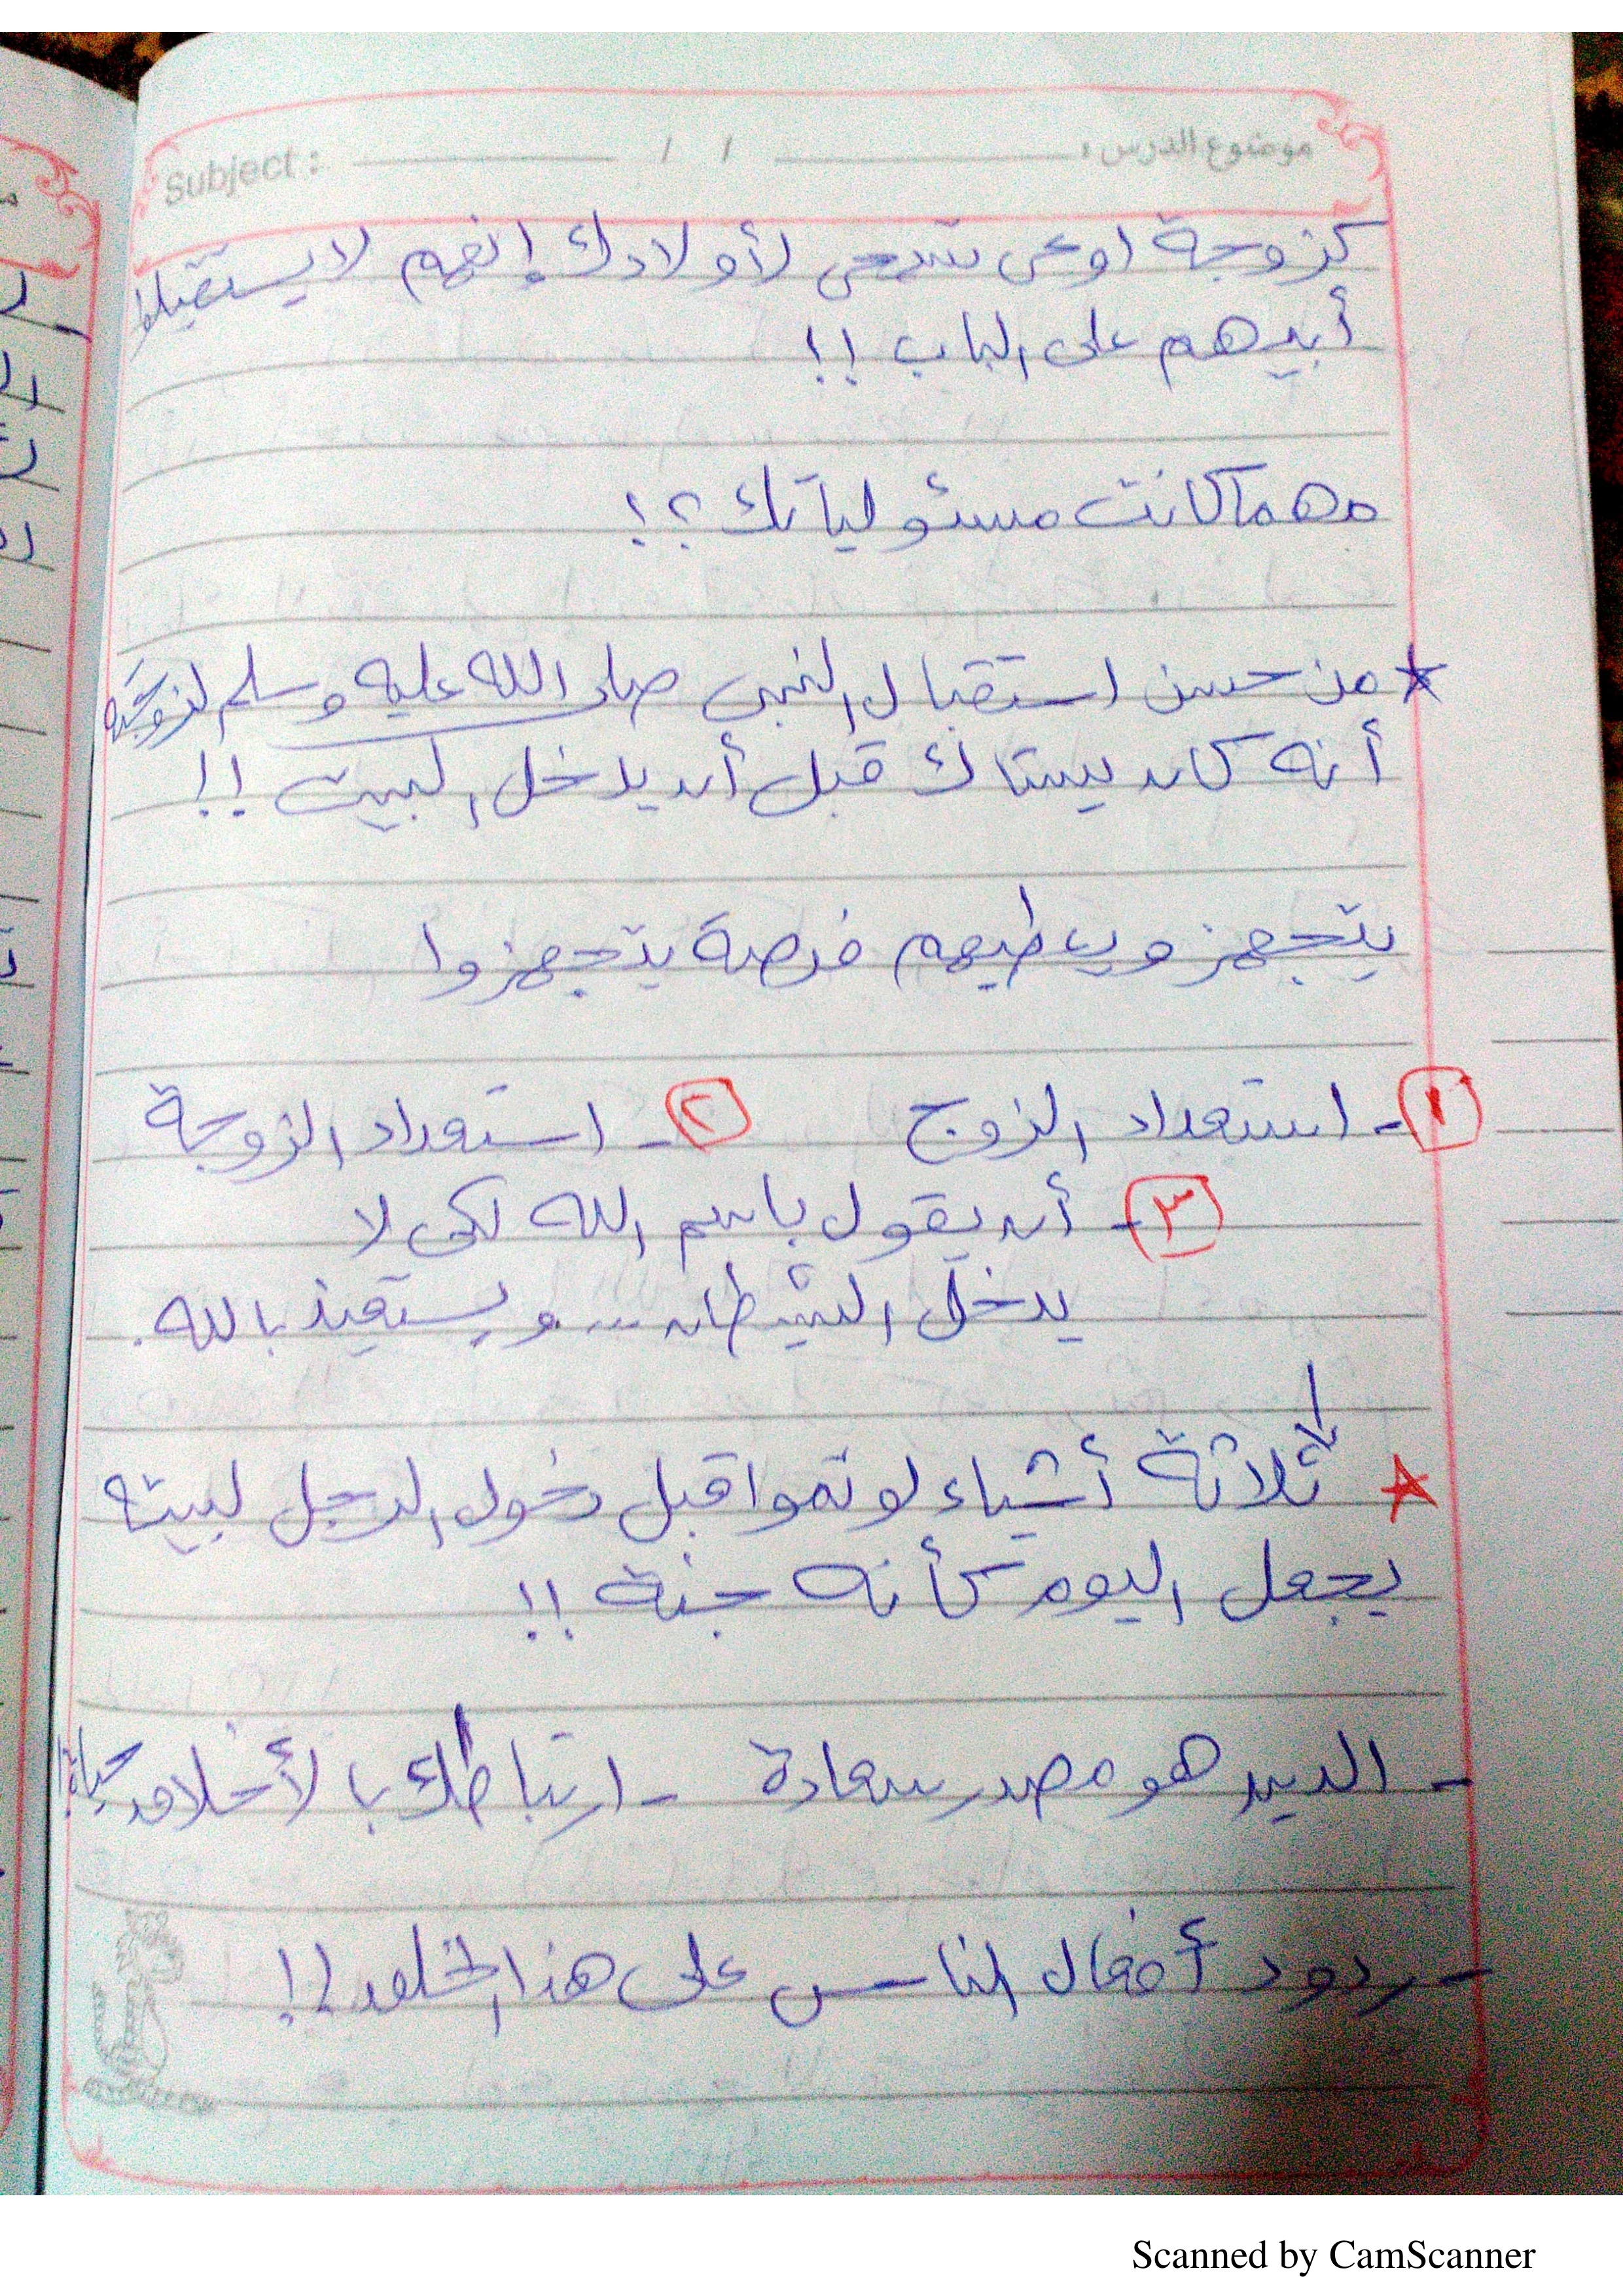 Subject : / / موضوع الدرس :
كزوجة اوعى تسمحى لأولادك إنهم لا يستقبلوا
أبيهم على الباب !!
مهما كانت مسئولياتك ؟!
* من حسن استقبال النبى صلى الله عليه وسلم لزوجته
أنه كان يستاك قبل أن يدخل البيت !!
يتجهز ويعطيهم فرصة يتجهزوا
١ - استعداد الزوج ٢ - استعداد الزوجة
٣ - أن يقول باسم الله لكى لا
يدخل الشيطان ... ويستعيذ بالله .
* ثلاثة أشياء لو تموا قبل دخول الرجل لبيته
يجعل اليوم كأنه جنة !!
- الدين هو مصدر سعادة - ارتباطك بالأخلاق
- ردود أفعال الناس على هذا الخلق ؟!
Scanned by CamScanner